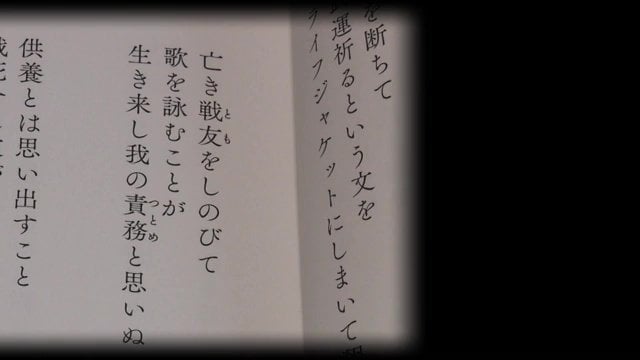 を断ちて
運祈るという文を
ライフジャケットにしまいて
亡き戦友をしのびて
とも
歌を詠むことが
生き来し我の責務と思いぬ
つとめ
供養とは思い出すこと